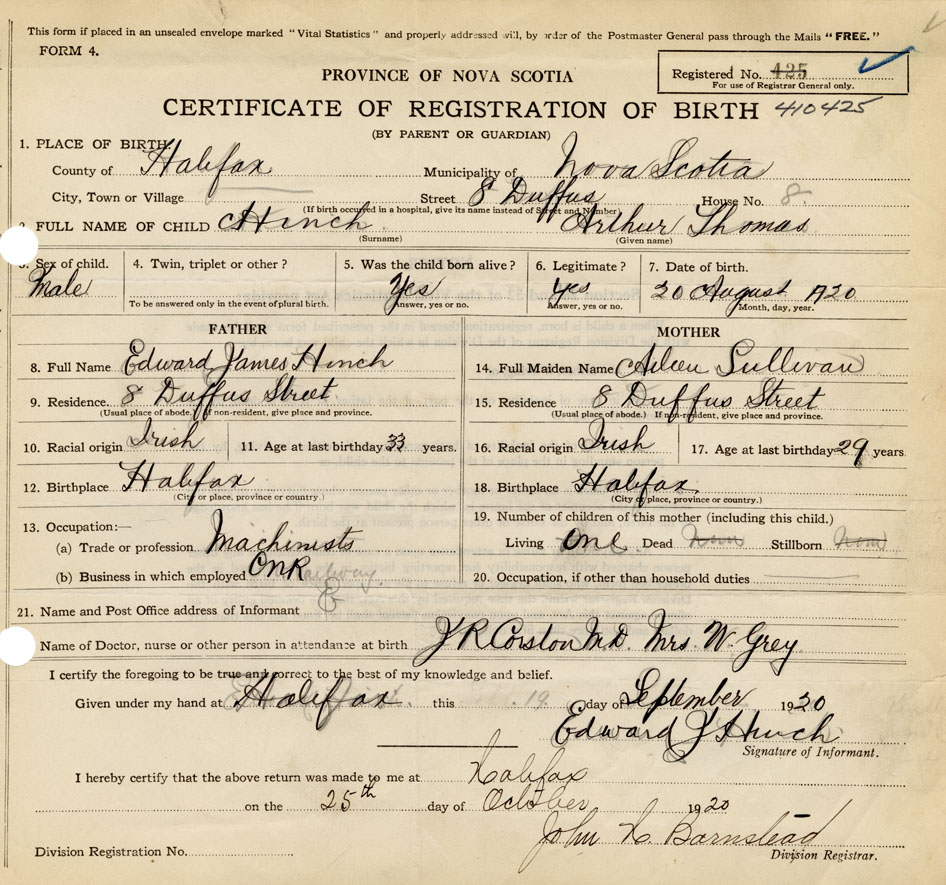 This form if placed in an unsealed envelope marked "Vital Statistics" and properly addressed will, by order of the Postmaster General pass through the Mails "FREE."
FORM 4.
PROVINCE OF NOVA SCOTIA
Registered No. 425
For use of Registrar General only.
CERTIFICATE OF REGISTRATION OF BIRTH 410425
(BY PARENT OR GUARDIAN)
1. PLACE OF BIRTH
County of Halifax Municipality of Nova Scotia
City, Town or Village Street 8 Duffus House No. 8
(If birth occurred in a hospital, give its name instead of Street and Number)
2. FULL NAME OF CHILD Hinch Arthur Thomas
(Surname) (Given name)
3. Sex of child. 4. Twin, triplet or other? 5. Was the child born alive? 6. Legitimate? 7. Date of birth.
Male Yes Yes 20 August 1920
To be answered only in the event of plural birth. Answer, yes or no. Answer, yes or no. Month, day, year.
FATHER MOTHER
8. Full Name Edward James Hinch 14. Full Maiden Name Aileen Sullivan
9. Residence 8 Duffus Street 15. Residence 8 Duffus Street
(Usual place of abode.) If non-resident, give place and province. (Usual place of abode.) If non-resident, give place and province.
10. Racial origin Irish 11. Age at last birthday 33 years. 16. Racial origin Irish 17. Age at last birthday 29 years.
12. Birthplace Halifax 18. Birthplace Halifax
(City or place, province or country.) (City or place, province or country.)
13. Occupation:— 19. Number of children of this mother (including this child.)
(a) Trade or profession Machinists Living One Dead None Stillborn None
(b) Business in which employed CNR Railway 20. Occupation, if other than household duties
21. Name and Post Office address of Informant
Name of Doctor, nurse or other person in attendance at birth J R Corston M.D. Mrs W. Grey
I certify the foregoing to be true and correct to the best of my knowledge and belief.
Given under my hand at Halifax this day of September 1920
Edward J Hinch
Signature of Informant.
I hereby certify that the above return was made to me at Halifax
on the 25th day of October 1920
John H. Barnstead
Division Registration No. Division Registrar.